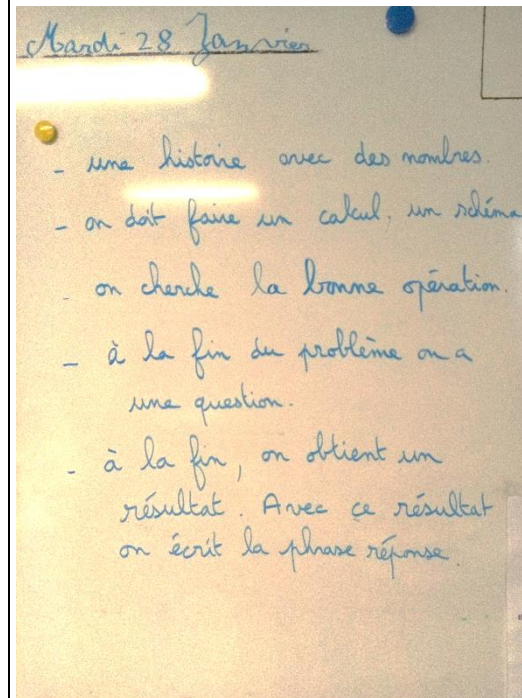 Mardi 28 Janvier
- une histoire avec des nombres.
- on doit faire un calcul, un schéma
- on cherche la bonne opération.
- à la fin du problème on a
une question.
- à la fin, on obtient un
résultat. Avec ce résultat
on écrit la phrase réponse.